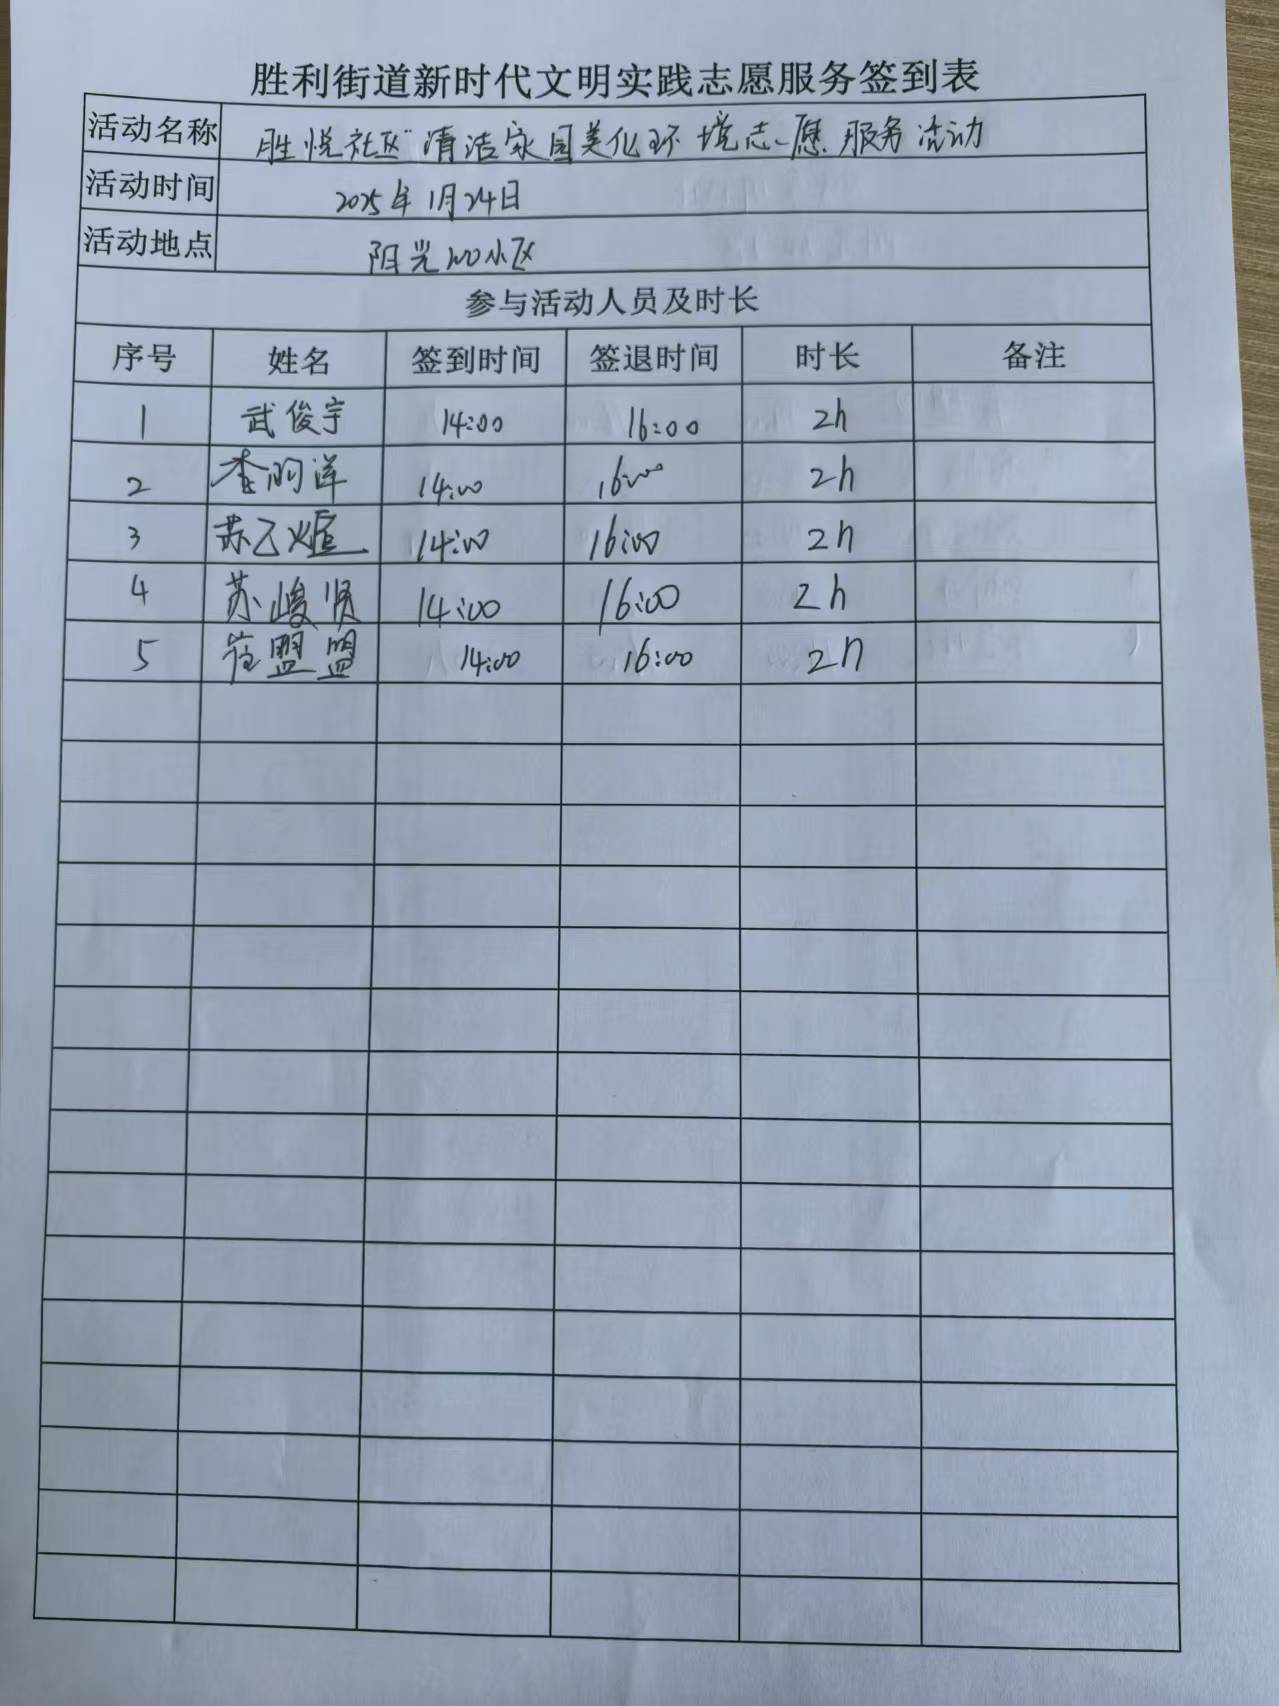 胜利街道新时代文明实践志愿服务签到表
活动名称 胜悦社区"清洁家园美化环境志愿服务活动
活动时间 2025年1月24日
活动地点 阳光100小区
参与活动人员及时长
序号 姓名 签到时间 签退时间 时长 备注
1 武俊宇 14:00 16:00 2h
2 李明洋 14:00 16:00 2h
3 苏乙烜 14:00 16:00 2h
4 苏峻贤 14:00 16:00 2h
5 崔盟盟 14:00 16:00 2h